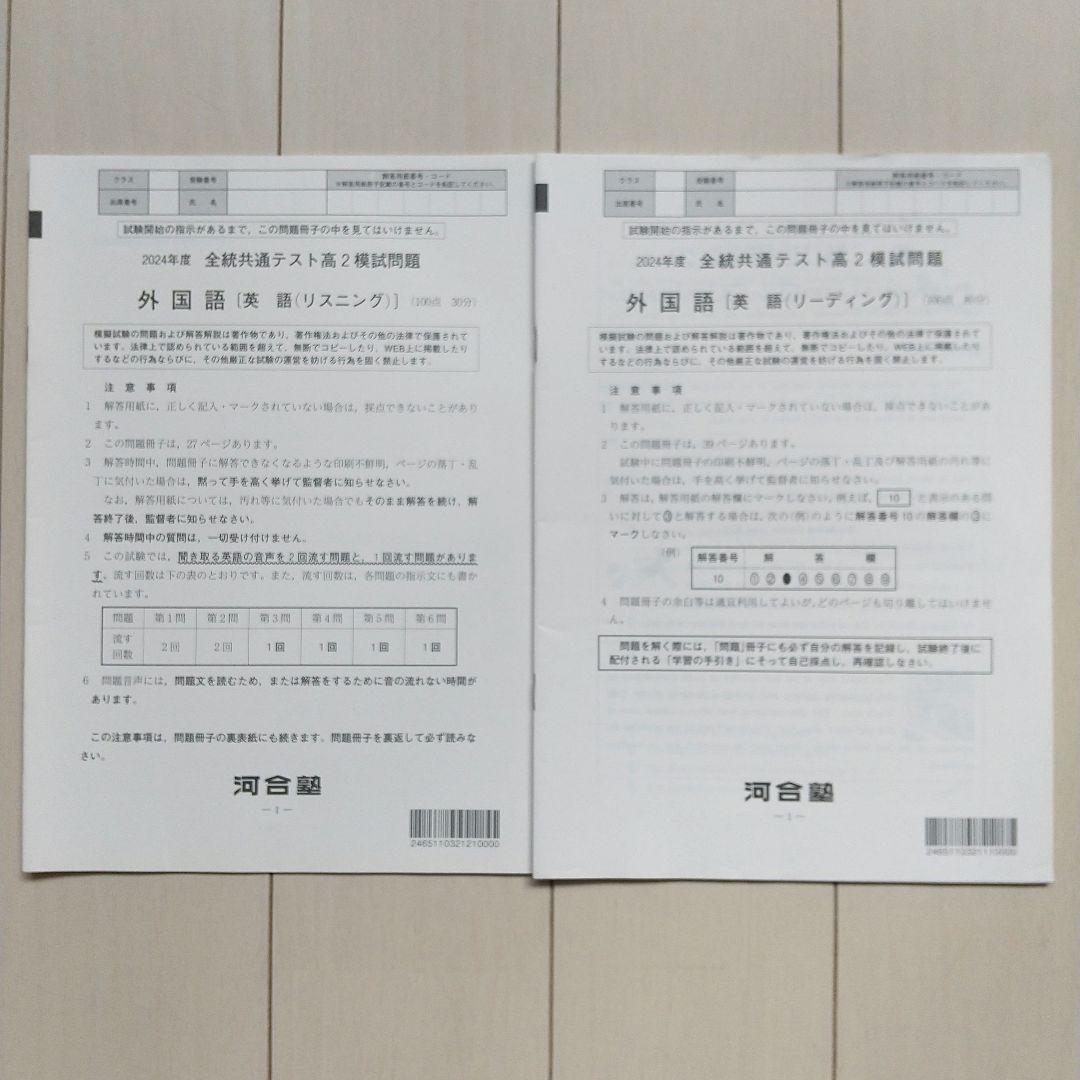 クラス
受験番号
解答用紙番号・コード
※解答用紙冊子記載の番号とコードを転記してください。
出席番号
氏 名
試験開始の指示があるまで，この問題冊子の中を見てはいけません。
2024年度 全統共通テスト高2模試問題
外国語［英 語（リスニング）］（100点 30分）
模擬試験の問題および解答解説は著作物であり，著作権法およびその他の法律で保護されて
います。法律上で認められている範囲を超えて，無断でコピーしたり，WEB上に掲載したり
するなどの行為ならびに，その他厳正な試験の運営を妨げる行為を固く禁止します。
注 意 事 項
1 解答用紙に，正しく記入・マークされていない場合は，採点できないことがあり
ます。
2 この問題冊子は，27ページあります。
3 解答時間中，問題冊子に解答できなくなるような印刷不鮮明，ページの落丁・乱
丁に気付いた場合は，黙って手を高く挙げて監督者に知らせなさい。
なお，解答用紙については，汚れ等に気付いた場合でもそのまま解答を続け，解
答終了後，監督者に知らせなさい。
4 解答時間中の質問は，一切受け付けません。
5 この試験では，聞き取る英語の音声を2回流す問題と，1回流す問題がありま
す。流す回数は下の表のとおりです。また，流す回数は，各問題の指示文にも書か
れています。
問題 第1問 第2問 第3問 第4問 第5問 第6問
流す
回数 2回 2回 1回 1回 1回 1回
6 問題音声には，問題文を読むため，または解答をするために音の流れない時間が
あります。
この注意事項は，問題冊子の裏表紙にも続きます。問題冊子を裏返して必ず読みな
さい。
河合塾
－1－
2465110321210000
クラス
受験番号
解答用紙番号・コード
出席番号
氏 名
試験開始の指示があるまで，この問題冊子の中を見てはいけません。
2024年度 全統共通テスト高2模試問題
外国語［英 語（リーディング）］（100点 80分）
模擬試験の問題および解答解説は著作物であり，著作権法およびその他の法律で保護されて
います。法律上で認められている範囲を超えて，無断でコピーしたり，WEB上に掲載したり
するなどの行為ならびに，その他厳正な試験の運営を妨げる行為を固く禁止します。
注 意 事 項
1 解答用紙に，正しく記入・マークされていない場合は，採点できないことがあ
ります。
2 この問題冊子は，39ページあります。
試験中に問題冊子の印刷不鮮明，ページの落丁・乱丁及び解答用紙の汚れ等に
気付いた場合は，手を高く挙げて監督者に知らせなさい。
3 解答は，解答用紙の解答欄にマークしなさい。例えば，10 と表示のある問
いに対して③と解答する場合は，次の（例）のように解答番号10の解答欄の③に
マークしなさい。
（例）
解答番号 解 答 欄
10 ① ② ● ④ ⑤ ⑥ ⑦ ⑧ ⑨
4 問題冊子の余白等は適宜利用してよいが，どのページも切り離してはいけませ
ん。
問題を解く際には，「問題」冊子にも必ず自分の解答を記録し，試験終了後に
配付される「学習の手引き」にそって自己採点し，再確認しなさい。
河合塾
－1－
2465110321110000